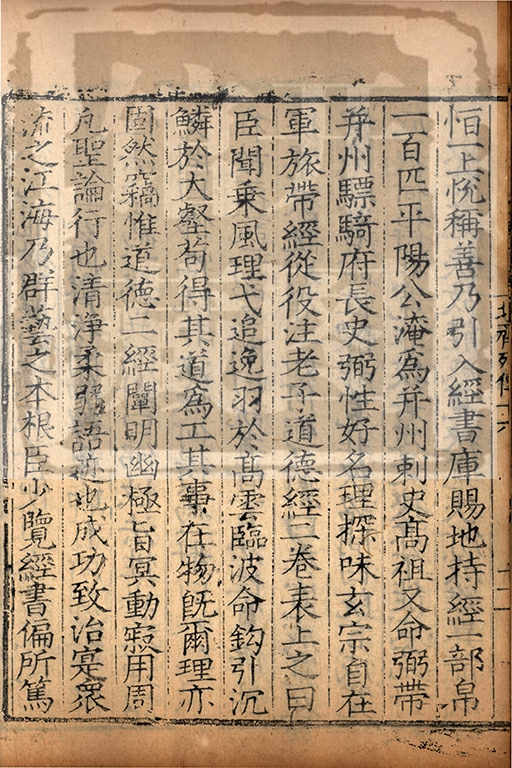 恒一上悅稱善乃引入經書庫賜地持經一部帛
一百匹平陽公淹為并州刺史髙祖又命弼帶
并州驃騎府長史弼性好名理探味玄宗自在
軍旅帶經從役注老子道德經二卷表上之曰
臣聞乗風理弋追逸羽於髙雲臨波命鈎引沉
鱗於大壑苟得其道為工其事在物旣爾理亦
固然竊惟道德二經闡明幽極旨冥動寂用周
凢聖論行也清浄柔弱語迹也成功致治寔衆
流之江海乃群藝之本根臣少覽經書偏所篤